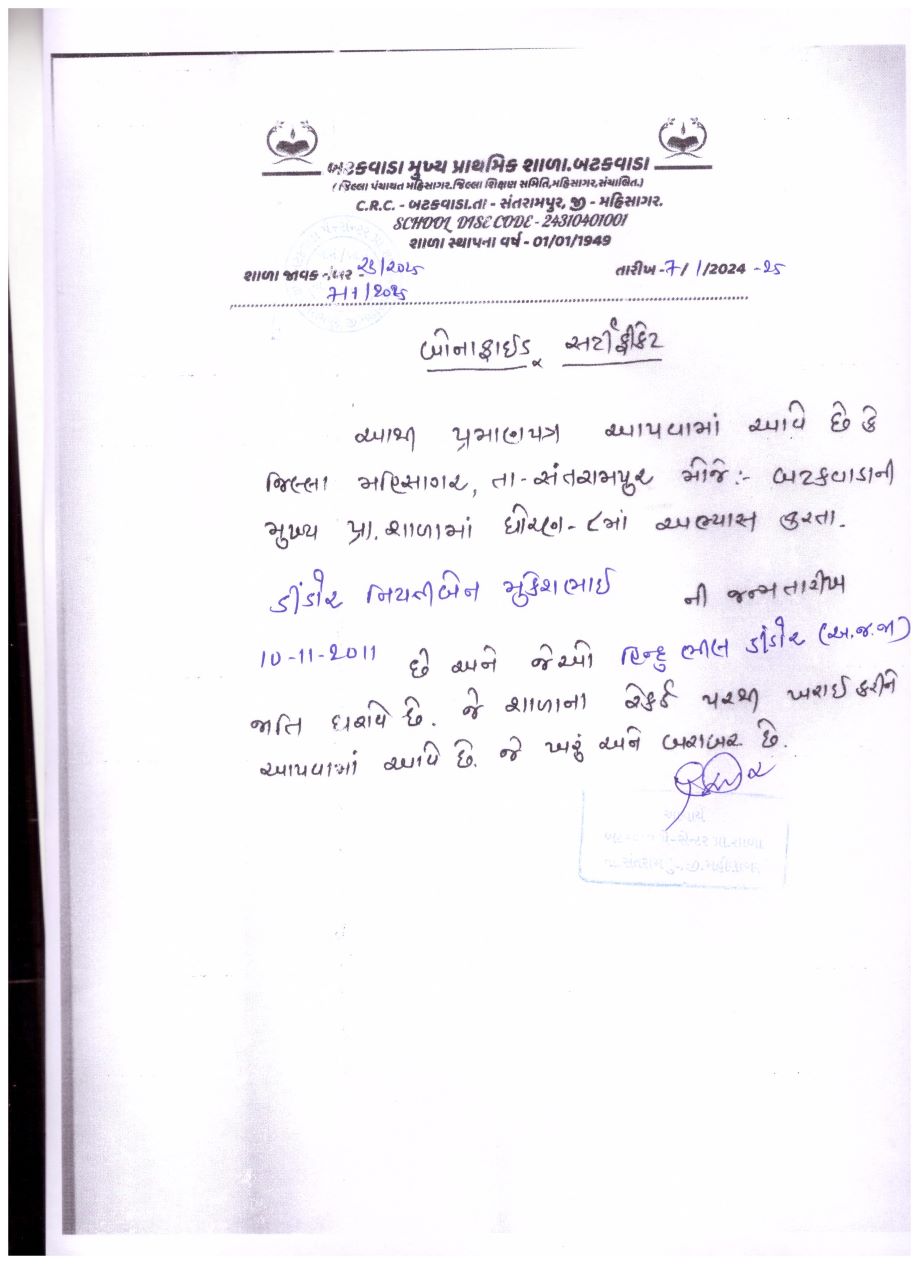 બટકવાડા મુખ્ય પ્રાથમિક શાળા.બટકવાડા
(જિલ્લા પંચાયત મહિસાગર.જિલ્લા શિક્ષણ સમિતિ,મહિસાગર,સંચાલિત.)
C.R.C. - બટકવાડા.તા - સંતરામપુર, જી - મહિસાગર.
SCHOOL DISE CODE - 24310401001
શાળા સ્થાપના વર્ષ - 01/01/1949
શાળા જાવક નંબર - 23/2025 તારીખ -7/1/2024 -25
7/1/2025
બોનાફાઈડ સર્ટીફીકેટ
આથી પ્રમાણપત્ર આપવામાં આવે છે કે
જિલ્લા મહિસાગર, તા-સંતરામપુર મોજે:- બટકવાડાની
મુખ્ય પ્રા. શાળામાં ધોરણ-૮માં અભ્યાસ કરતા.
ડીંડોર નિયતીબેન મુકેશભાઈ ની જન્મતારીખ
10-11-2011 છે અને જેઓ હિન્દુ ભીલ ડીંડોર (અ.જ.જા)
જાતિ ધરાવે છે. જે શાળાના રેકર્ડ પરથી ખરાઈ કરીને
આપવામાં આવે છે. જે ખરું અને બરાબર છે.